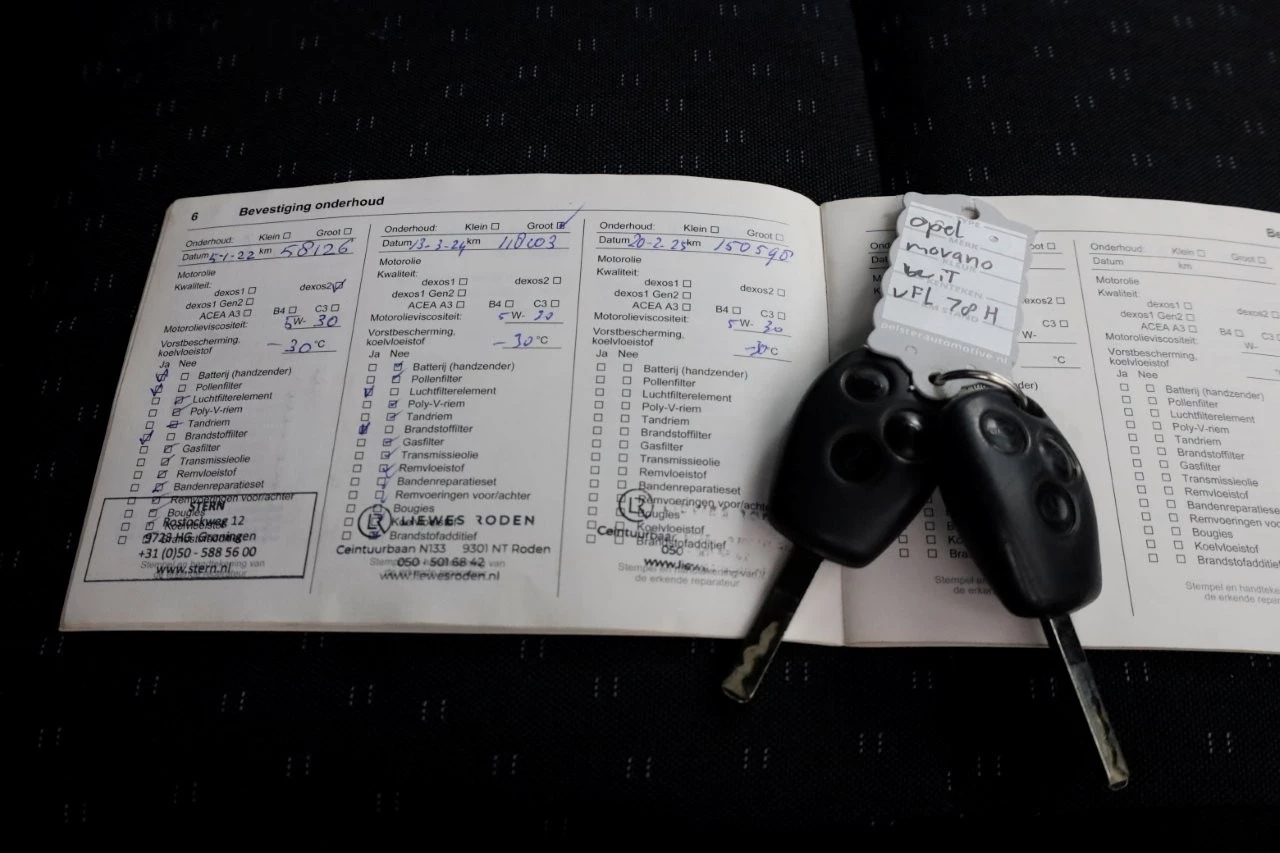 6 Bevestiging onderhoud
Onderhoud: Klein Groot
Datum 5-1-22 km 58126
Motorolie
Kwaliteit:
dexos1 dexos2
dexos1 Gen2
ACEA A3 B4 C3
Motorolieviscositeit: 5 W- 30
Vorstbescherming,
koelvloeistof -30 °C
Ja Nee
Batterij (handzender)
Pollenfilter
Luchtfilterelement
Poly-V-riem
Tandriem
Brandstoffilter
Gasfilter
Transmissieolie
Remvloeistof
Bandenreparatieset
Remvoeringen voor/achter
Bougies
Koelvloeistof
STERN
Rostockweg 12
9723 HG Groningen
+31 (0)50 - 588 56 00
www.stern.nl
Stempel en handtekening van
Onderhoud: Klein Groot
Datum 13-3-24 km 118003
Motorolie
Kwaliteit:
dexos1 dexos2
dexos1 Gen2
ACEA A3 B4 C3
Motorolieviscositeit: 5 W- 30
Vorstbescherming,
koelvloeistof -30 °C
Ja Nee
Batterij (handzender)
Pollenfilter
Luchtfilterelement
Poly-V-riem
Tandriem
Brandstoffilter
Gasfilter
Transmissieolie
Remvloeistof
Bandenreparatieset
Remvoeringen voor/achter
Bougies
Brandstofadditief
LR LIEWES RODEN
Ceintuurbaan N133 9301 NT Roden
050 - 501 68 42
www.liewesroden.nl
Onderhoud: Klein Groot
Datum 20-2-25 km 150598
Motorolie
Kwaliteit:
dexos1 dexos2
dexos1 Gen2
ACEA A3 B4 C3
Motorolieviscositeit: 5 W- 30
Vorstbescherming,
koelvloeistof -30 °C
Ja Nee
Batterij (handzender)
Pollenfilter
Luchtfilterelement
Poly-V-riem
Tandriem
Brandstoffilter
Gasfilter
Transmissieolie
Remvloeistof
Bandenreparatieset
Remvoeringen voor/acht
Bougies
Koelvloeistof
Brandstofadditief
LR
Ceintuurbaan
050
Stempel en handtekening van
de erkende reparateur
opel
movano
wit
VFL 78 H
MERK
KLEUR
KENTEKEN
KM STAND
oelsterautomotive.nl
Onderhoud: Klein Groot
Datum km
Motorolie
Kwaliteit:
dexos1 dexos2
dexos1 Gen2
ACEA A3 B4
Motorolieviscositeit: W-
Vorstbescherming,
koelvloeistof
Ja Nee
Batterij (handzender)
Pollenfilter
Luchtfilterelement
Poly-V-riem
Tandriem
Brandstoffilter
Gasfilter
Transmissieolie
Remvloeistof
Bandenreparatiese
Remvoeringen vo
Bougies
Koelvloeistof
Brandstofadditief
Stempel en handteke
de erkende repar